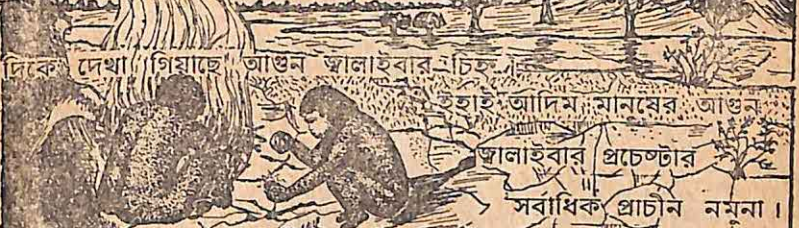 দিকে দেখা গিয়াছে আগুন জ্বালাইবার চিহ্ন।
উহাই আদিম মানুষের আগুন
জ্বালাইবার প্রচেষ্টার
সর্বাধিক প্রাচীন নমুনা।